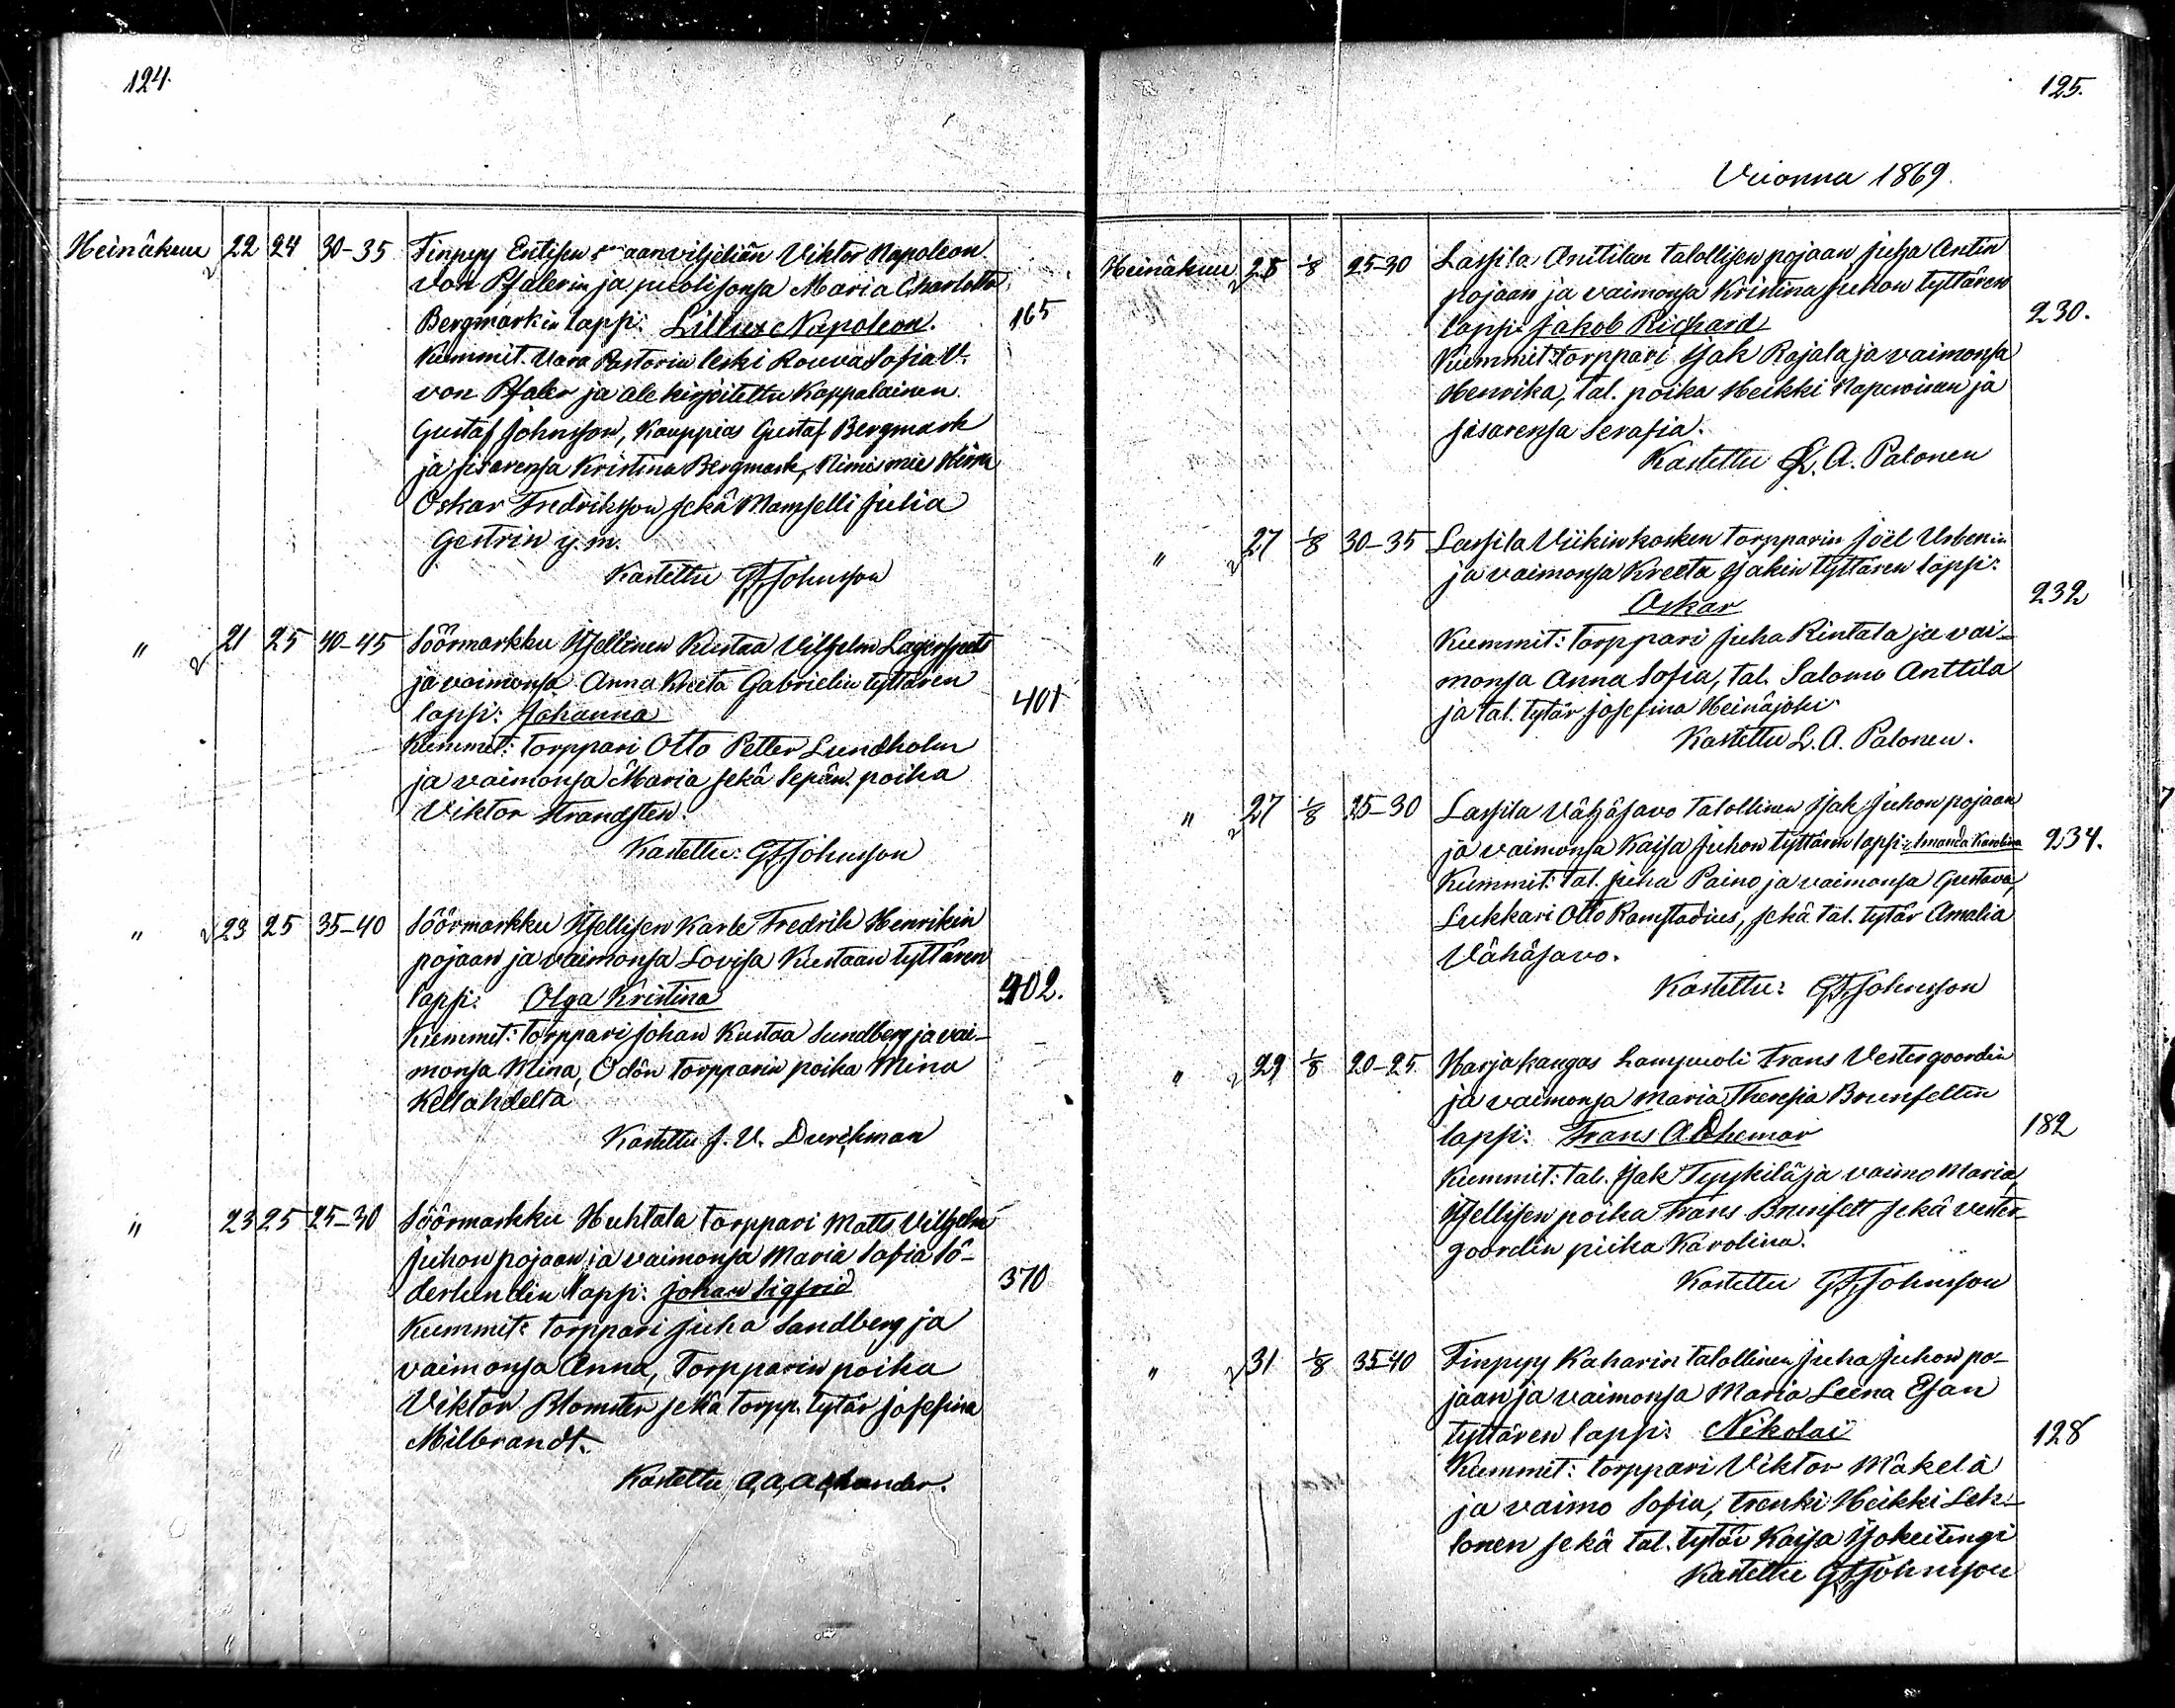 124.
Heinäkuu 22 24 30-35 Finpyy Entisen maanviljeliän Viktor Napoleon
von Pfalerin ja puolisonsa Maria Charlotta
Bergmarkin lapsi: Lillus Napoleon. 165
Kummit. Vara Pastorin leski Rouva Sofia V.
von Pfaler ja ale kirjoitettu Kappalainen
Gustaf Johnsson, Kauppias Gustaf Bergmark
ja sisarensa Kristina Bergmark, Nimismies
Oskar Fredriksson sekä Mamselli Julia
Gestrin y. m.
Kastettu GFJohnsson
" 21 25 40-45 Söörmarkku Itsellinen Kustaa Vilhelm Lagerspets
ja vaimonsa Anna Kreeta Gabrielin tyttären
lapsi: Johanna 401
Kummit: torppari Otto Petter Lundholm
ja vaimonsa Maria sekä Sepän poika
Viktor Strandsten.
Kastettu: GFJohnsson
" 23 25 35-40 Söörmarkku Itsellisen Karle Fredrik Henrikin
pojaan ja vaimonsa Lovisa Kustaan tyttären
lapsi: Olga Kristina 402.
Kummit: torppari Johan Kustaa Sundberg ja vai-
monsa Mina, Odön torpparin poika Mina
Kellahdelta
Kastettu J. V. Durchman
" 23 25 25-30 Söörmarkku Huhtala torppari Matts Vilhelm
Juhon pojaan ja vaimonsa Maria Sofia Sö-
derlundin lapsi: Johan Sigfrid 370
Kummit: torppari Juha Sandberg ja
vaimonsa Anna, Torpparin poika
Viktor Blomster sekä torpp. tytär Josefina
Milbrandt.
Kastettu A. A. Achander.
125.
Vuonna 1869.
Heinäkuu 25 1/8 25-30 Lassila Anttilan talollisen pojaan Juha Antin
pojaan ja vaimonsa Kristina Juhon tyttären
lapsi: Jakob Richard 230.
Kummit: torppari Isak Rajala ja vaimonsa
Henrika, tal. poika Heikki ja
sisarensa Serafia.
Kastettu L. A. Palonen
" 27 1/8 30-35 Lassila Viikinkosken torpparin Joël Urbenin
ja vaimonsa Kreeta Isakin tyttären lapsi:
Oskar 232
Kummit: torppari Juha Rintala ja vai-
monsa Anna Sofia, tal. Salomo Anttila
ja tal. tytär Josefina Heinäjoki.
Kastettu L. A. Palonen.
" 27 1/8 25-30 Lassila Vähäsavo talollinen Isak Juhon pojaan
ja vaimonsa Kaisa Juhon tyttären lapsi: Amanda Karolina 234.
Kummit: tal. Juha Paino ja vaimonsa Gustava,
Lukkari Otto Ramstadius, sekä tal. tytär Amalia
Vähäsavo.
Kastettu: GFJohnsson
" 29 1/8 20-25 Harjakangas Lampuoti Frans Vestergoordin
ja vaimonsa Maria Theresia Brunfeltin
lapsi: Frans Adhemar 182
Kummit: tal. Isak Tyyskilä ja vaimo Maria,
Itsellisen poika Frans Brunfelt sekä Vester-
goordin piika Karolina.
Kastettu GFJohnsson
" 31 1/8 35-40 Finpyy Kaharin talollinen Juha Juhon po-
jaan ja vaimonsa Maria Leena Esan
tyttären lapsi: Nikolai 128
Kummit: torppari Viktor Mäkelä
ja vaimo Sofia, trenki Heikki Leh-
tonen sekä tal. tytär Kaisa
Kastettu GFJohnsson